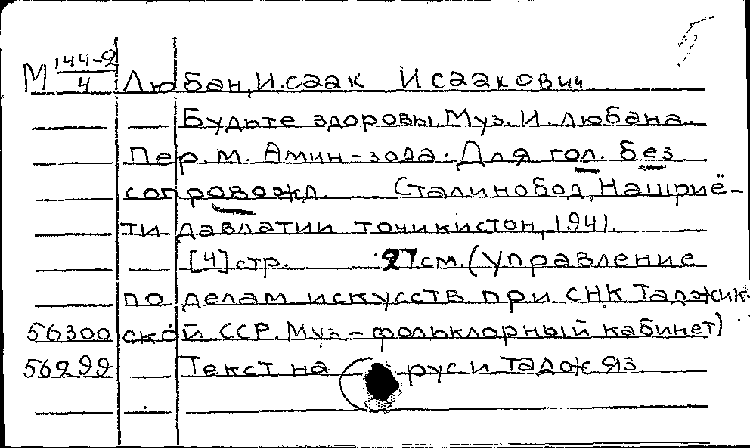 М 144-2/4 Любан, Исаак Исаакович
Будьте здоровы. Муз. И. Любана.
Пер. М. Амин-зода. Для гол. без
сопровожд. Сталинобод, Нашриё-
ти давлатии точикистон, 1941.
[4] стр. 27 см. (Управление
по делам искусств при СНК Таджик-
56300 ской ССР. Муз-фольклорный кабинет)
56299 Текст на рус и тадж яз